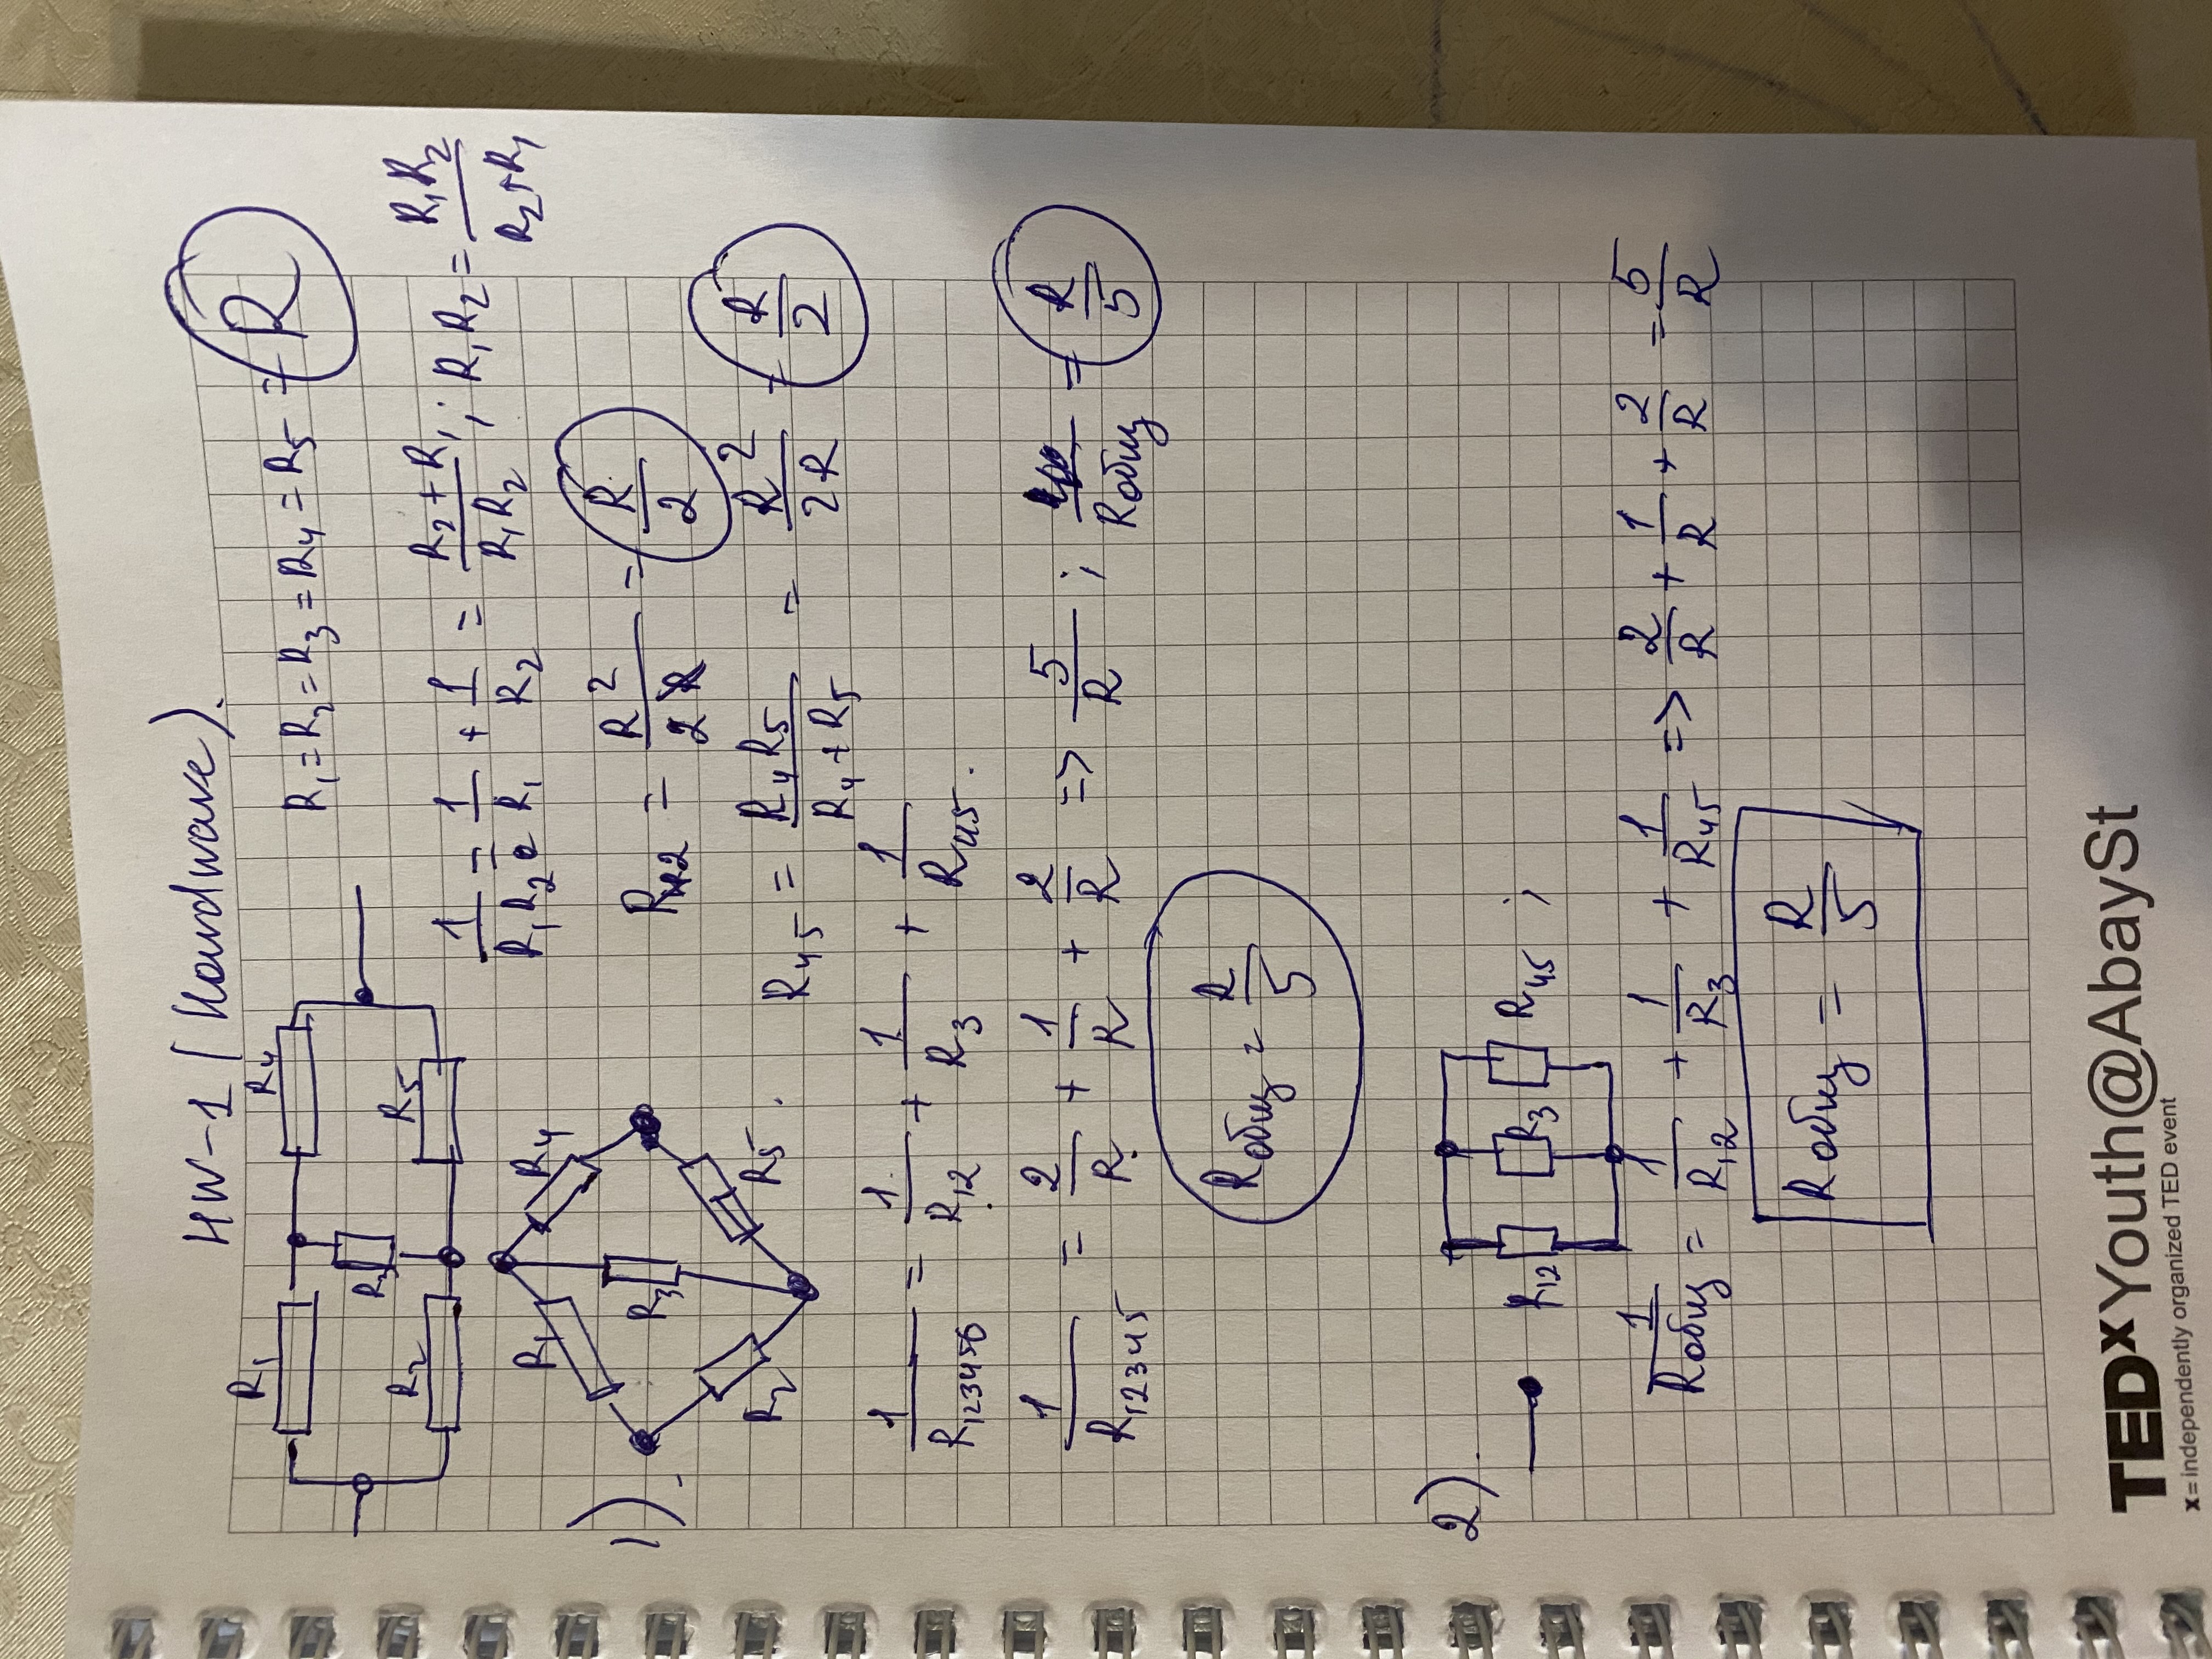 HW-1 (Hardware).
R₁ R₄
R₁ = R₂ = R₃ = R₄ = R₅ = R
R₃
R₂ R₅
1/R₁R₂ = 1/R₁ + 1/R₂ = (R₂ + R₁)/(R₁R₂) ; R₁R₂ = (R₁R₂)/(R₂ + R₁)
1).
R₁ R₄
R₃
R₂ R₅ .
R₁₂ = R²/2R = R/2
R₄₅ = (R₄ R₅)/(R₄ + R₅) = R²/2R = R/2
1/R₁₂₃₄₅₆ = 1/R₁₂ + 1/R₃ + 1/R₄₅ .
1/R₁₂₃₄₅ = 2/R + 1/R + 2/R => 5/R ; Rобщ = R/5
Rобщ = R/5
2).
R₁₂ R₃ R₄₅ ;
1/Rобщ = 1/R₁₂ + 1/R₃ + 1/R₄₅ => 2/R + 1/R + 2/R = 5/R
Rобщ = R/5
TEDxYouth@AbaySt
x=independently organized TED event